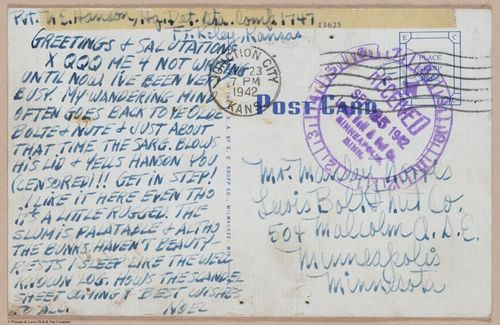 Pvt. N E Hanson, Hq. Det. Sta. Comp. 1747
Ft. Riley, Kansas
13625
GREETINGS & SALUTATIONS
X QQQ ME 4 NOT WRITING
UNTIL NOW. I'VE BEEN VERY
BUSY. MY WANDERING MIND
OFTEN GOES BACK TO YE OLDE
BOLTE & NUTE & JUST ABOUT
THAT TIME THE SARG. BLOWS
HIS LID & YELLS HANSON YOU
(CENSORED)!! GET IN STEP!
I LIKE IT HERE EVEN THO
IT'S A LITTLE RUGGED. THE
SLUM IS PALATABLE & ALTHO
THE BUNKS HAVEN'T BEAUTY-
RESTS I SLEEP LIKE THE WELL
KNOWN LOG. HOWS THE SCANDEL
SHEET COMING? BEST WISHES
TO ALL. NOEL
JUNCTION CITY
23
PM
1942
KANS
POST CARD
PLACE
RECEIVED
SEP 25 1942
Bolt & Nut Co.
MINNEAPOLIS
MINN.
Mr.
Lewis Bolt & Nut Co.
504 Malcolm A. S.E.
Minneapolis
Minnesota
© Western & Lewis Bolt & Nut Company